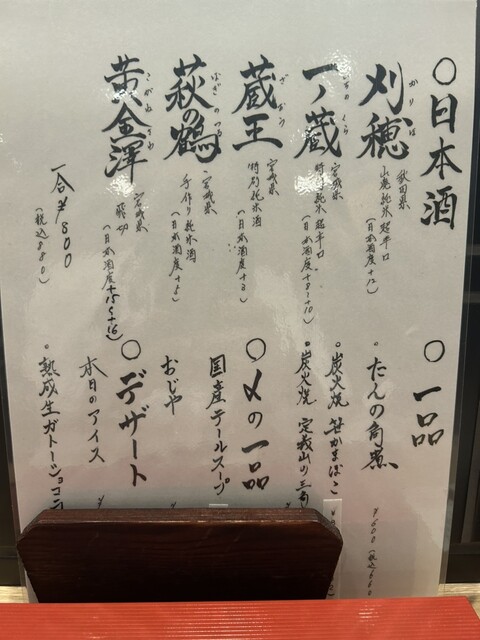 ○日本酒
刈穂
かりほ
秋田県
山廃純米超辛口
(日本酒度+12)
一ノ蔵
いちのくら
宮城県
特別純米超辛口
(日本酒度+8~+10)
蔵王
ざおう
宮城県
特別純米酒
(日本酒度+2)
萩の鶴
はぎのつる
宮城県
手作り純米酒
(日本酒度+5)
黄金澤
こがねさわ
宮城県
(日本酒度+15~+16)
一合¥800
(税込880)
○一品
・たんの角煮
¥600(税込660
・炭火焼 笹かまぼこ
・炭火焼 定義山の三角
○〆の一品
国産テールスープ
おじや
○デザート
本日のアイス
・熟成生ガトーショコラ